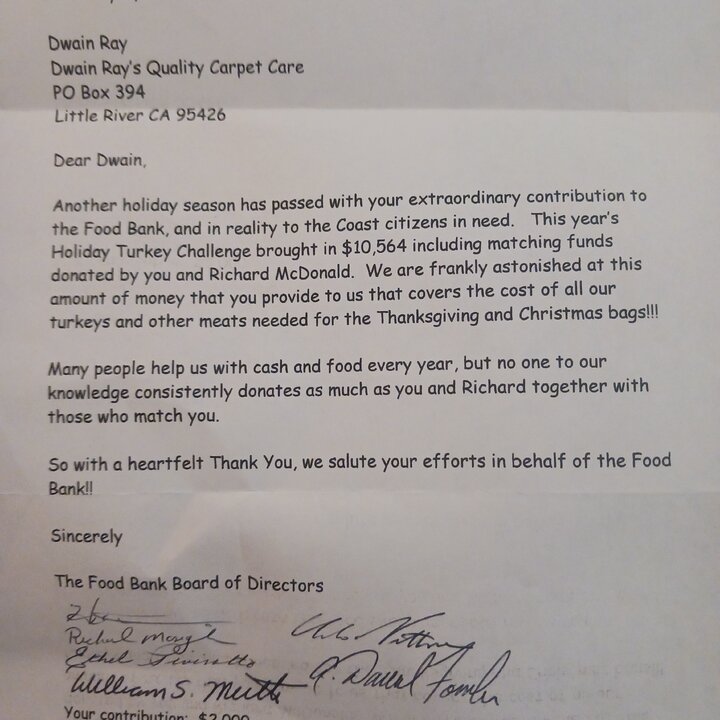 Dwain Ray
Dwain Ray's Quality Carpet Care
PO Box 394
Little River CA 95426
Dear Dwain,
Another holiday season has passed with your extraordinary contribution to
the Food Bank, and in reality to the Coast citizens in need. This year's
Holiday Turkey Challenge brought in $10,564 including matching funds
donated by you and Richard McDonald. We are frankly astonished at this
amount of money that you provide to us that covers the cost of all our
turkeys and other meats needed for the Thanksgiving and Christmas bags!!!
Many people help us with cash and food every year, but no one to our
knowledge consistently donates as much as you and Richard together with
those who match you.
So with a heartfelt Thank You, we salute your efforts in behalf of the Food
Bank!!
Sincerely
The Food Bank Board of Directors
Ethel
William S.
Your contribution: $2,000